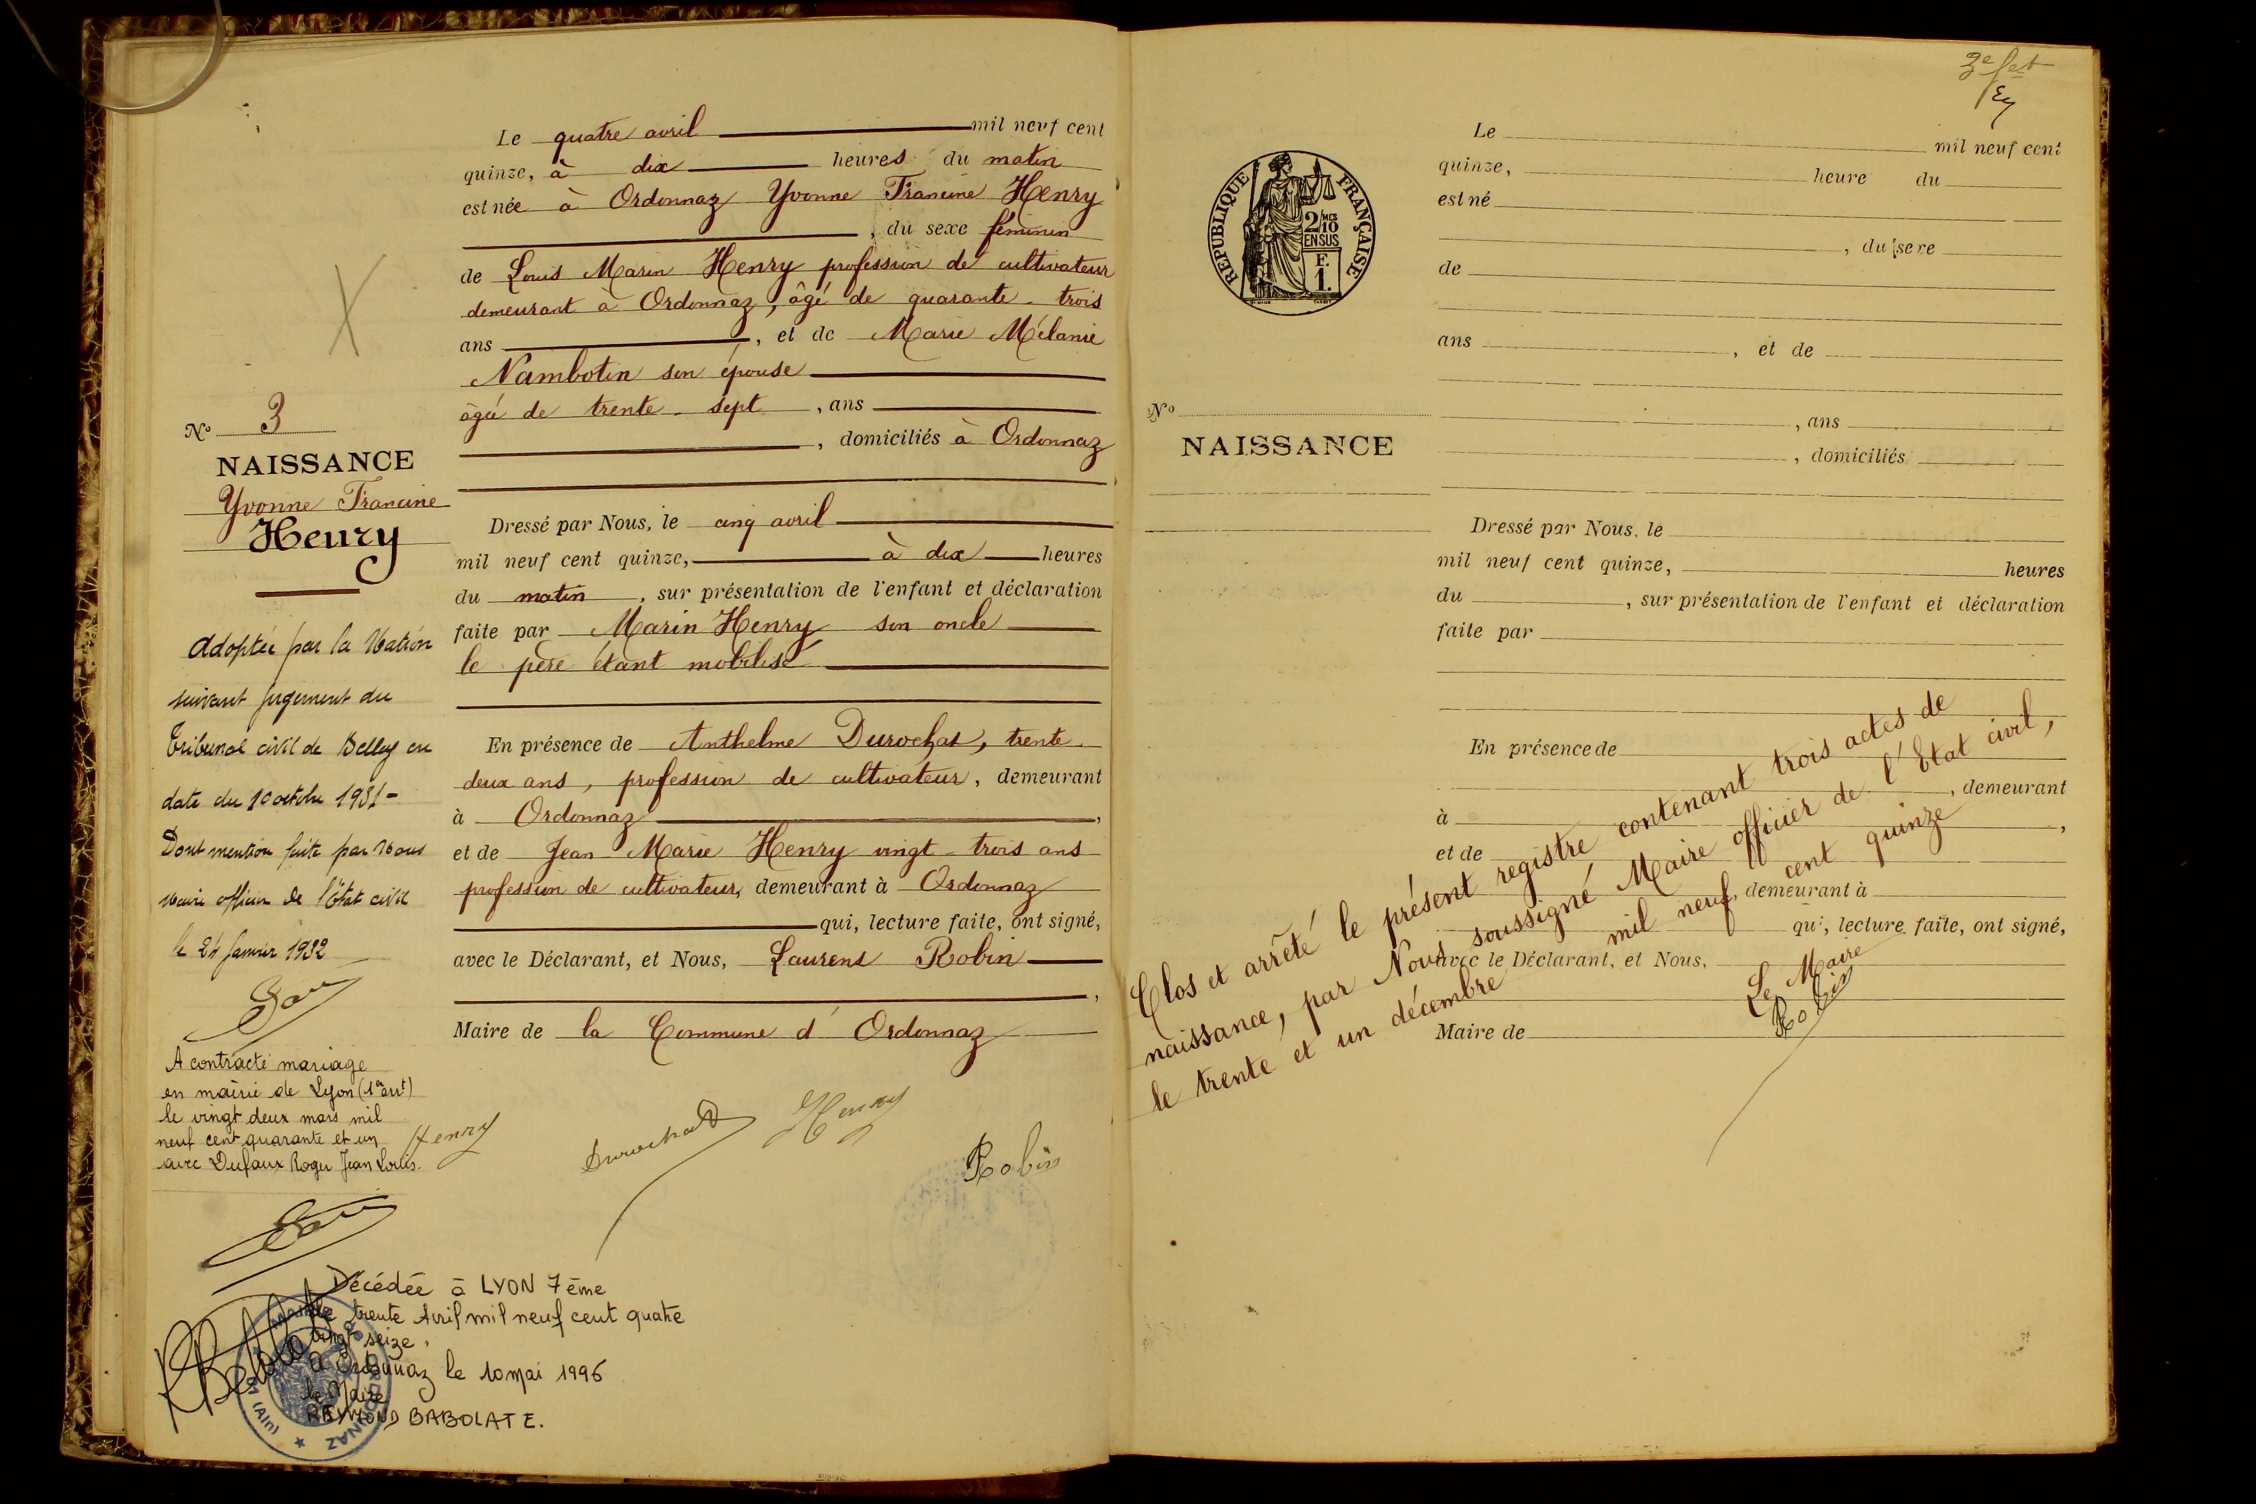 Le quatre avril mil neuf cent
quinze, à dix heures du matin
est née à Ordonnaz Yvonne Francine Henry
, du sexe féminin
de Louis Marin Henry profession de cultivateur
demeurant à Ordonnaz, âgé de quarante-trois
ans , et de Marie Mélanie
Nambotin son épouse
âgée de trente-sept , ans
, domiciliés à Ordonnaz
Dressé par Nous, le cinq avril
mil neuf cent quinze, à dix heures
du matin , sur présentation de l'enfant et déclaration
faite par Marin Henry son oncle
le père étant mobilisé
En présence de Anthelme Durochat, trente-
deux ans, profession de cultivateur, demeurant
à Ordonnaz ,
et de Jean Marie Henry vingt-trois ans
profession de cultivateur, demeurant à Ordonnaz
qui, lecture faite, ont signé,
avec le Déclarant, et Nous, Laurent Robin
,
Maire de la Commune d'Ordonnaz
Henry
Durochat
Henry
Robin
No 3
NAISSANCE
Yvonne Francine
Henry
Adoptée par la Nation
suivant jugement du
Tribunal civil de Belley en
date du 10 octobre 1931-
Dont mention faite par Nous
Maire officier de l'Etat civil
le 21 Janvier 1932
A contracté mariage
en mairie de Lyon (1er arrt)
le vingt deux mars mil
neuf cent quarante et un
avec Dufaux Roger Jean Louis.
Décédée à LYON 7ème
le trente Avril mil neuf cent quatre
vingt seize.
A Ordonnaz le 10 mai 1996
le Maire
REYMOND BABOLAT E.
MAIRIE D'ORDONNAZ (Ain)
REPUBLIQUE FRANÇAISE
2/10 MES
EN SUS
F.
1.
No
NAISSANCE
Le mil neuf cent
quinze, heure du
est né
, du sexe
de
ans , et de
, ans
, domiciliés
Dressé par Nous, le
mil neuf cent quinze, heures
du , sur présentation de l'enfant et déclaration
faite par
En présence de
, demeurant
à ,
et de
, demeurant à
qui, lecture faite, ont signé,
avec le Déclarant, et Nous,
Maire de
Clos et arrêté le présent registre contenant trois actes de
naissance, par Nous soussigné Maire officier de l'Etat civil,
le trente et un décembre mil neuf cent quinze
Le Maire
Robin